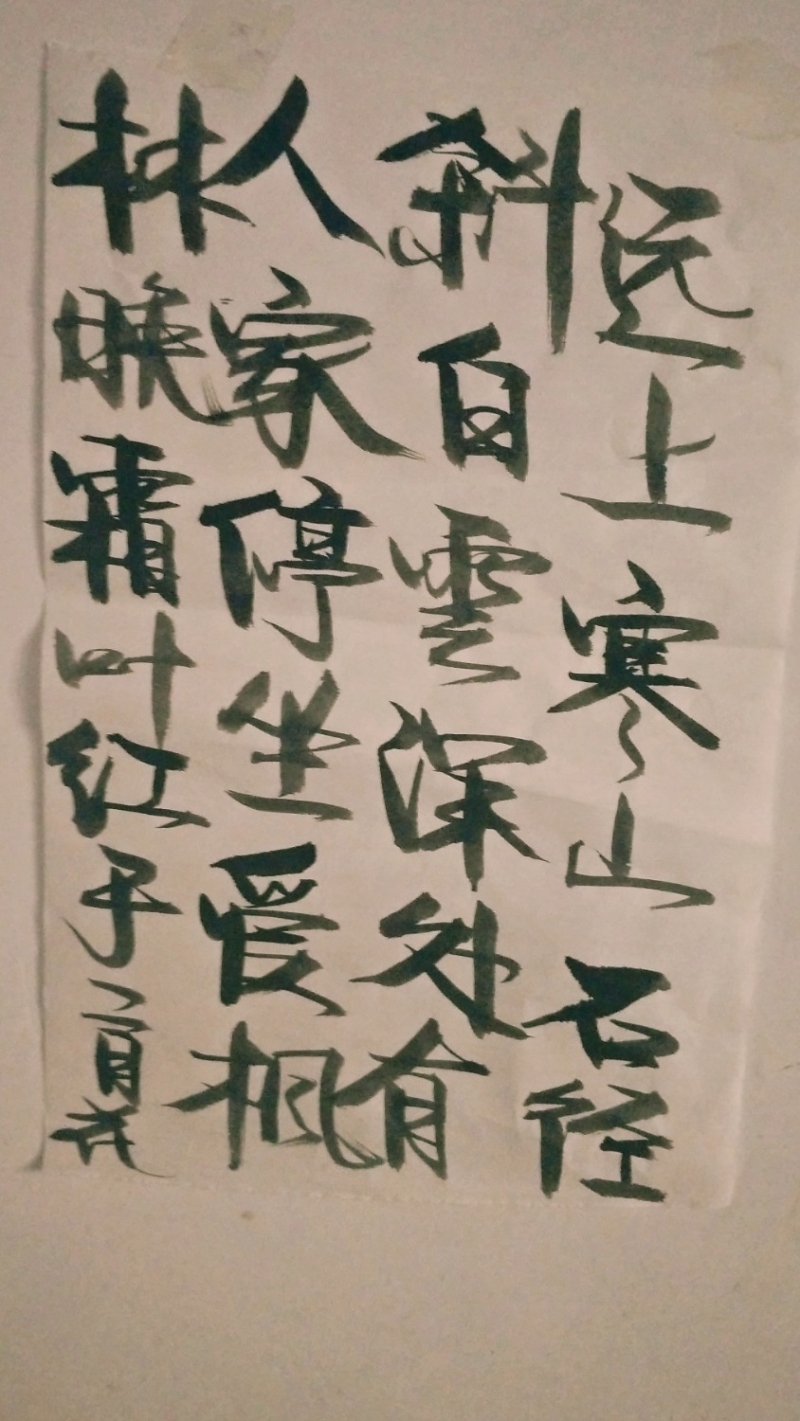 远上寒山石径
斜白雲深处有
人家停坐爱枫
林晚霜叶红于二月花